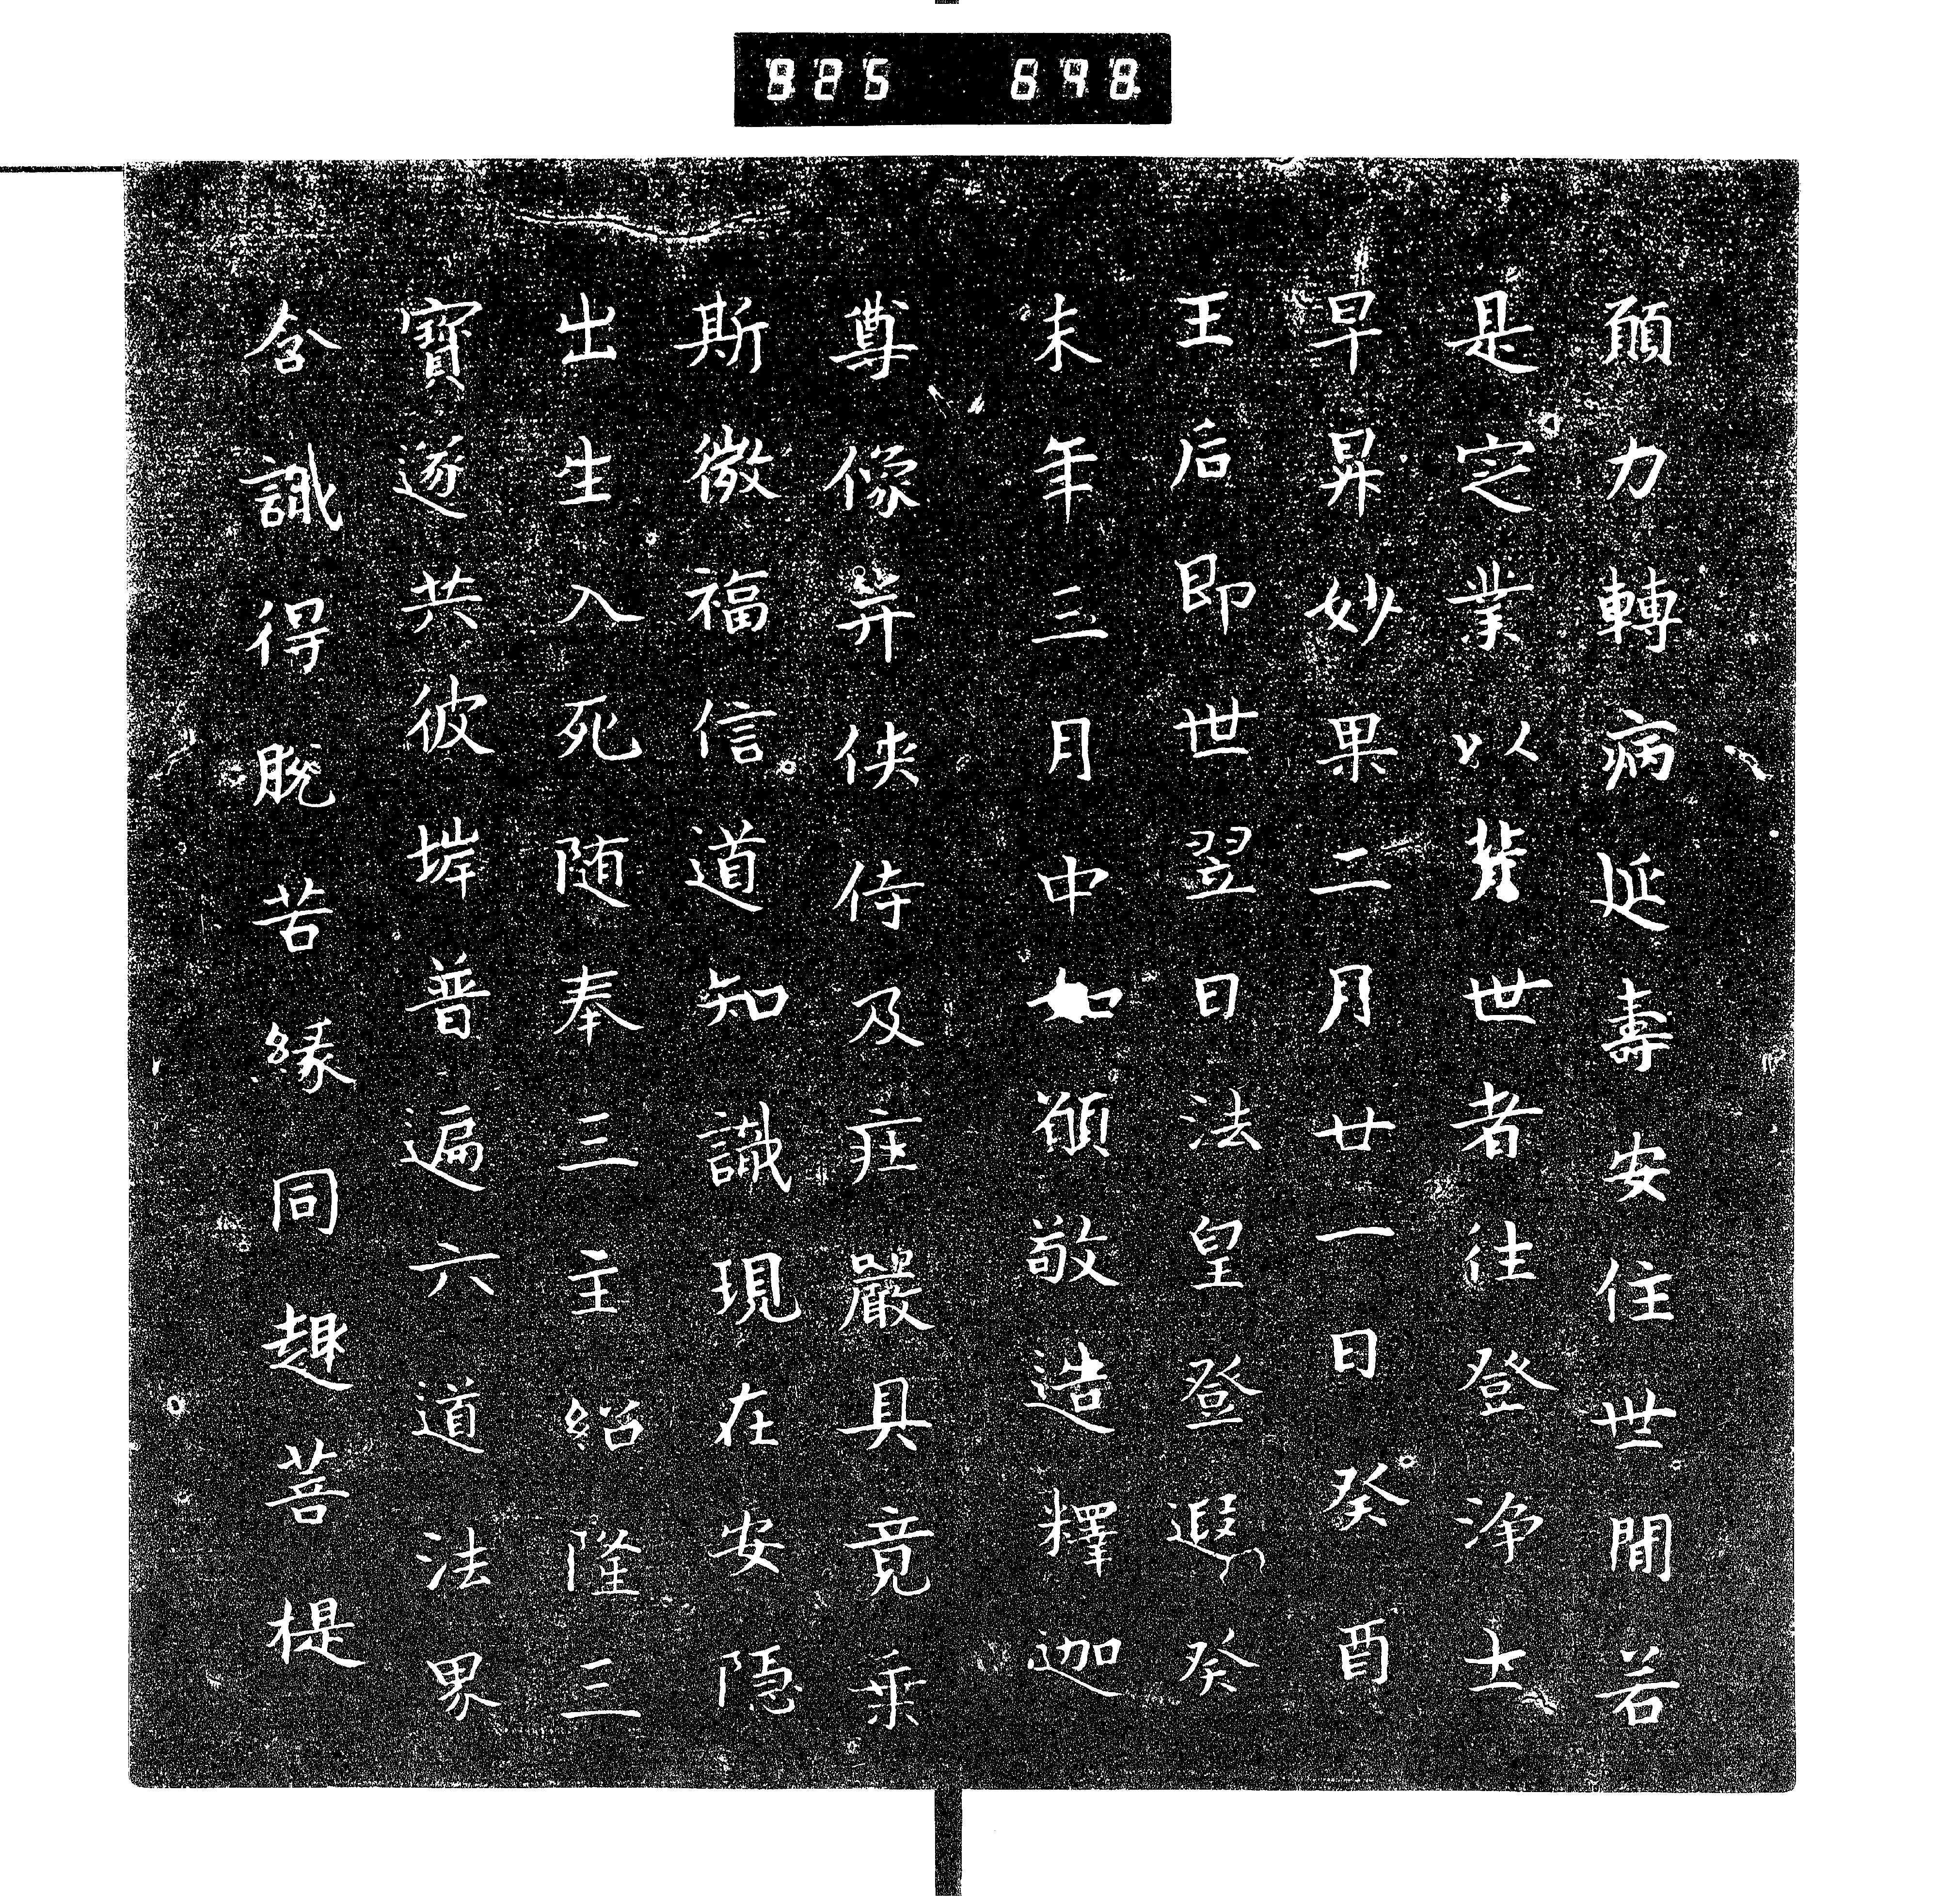 925 678
願力轉病延壽安住世間若
是定業以背世者往登浄土
早昇妙果二月廿一日癸酉
王后即世翌日法皇登遐癸
未年三月中如願敬造釋迦
尊像并侠侍及荘嚴具竟乗
斯微福信道知識現在安隠
出生入死随奉三主紹隆三
寶遂共彼堓普遍六道法界
含識得脱苦縁同趣菩提